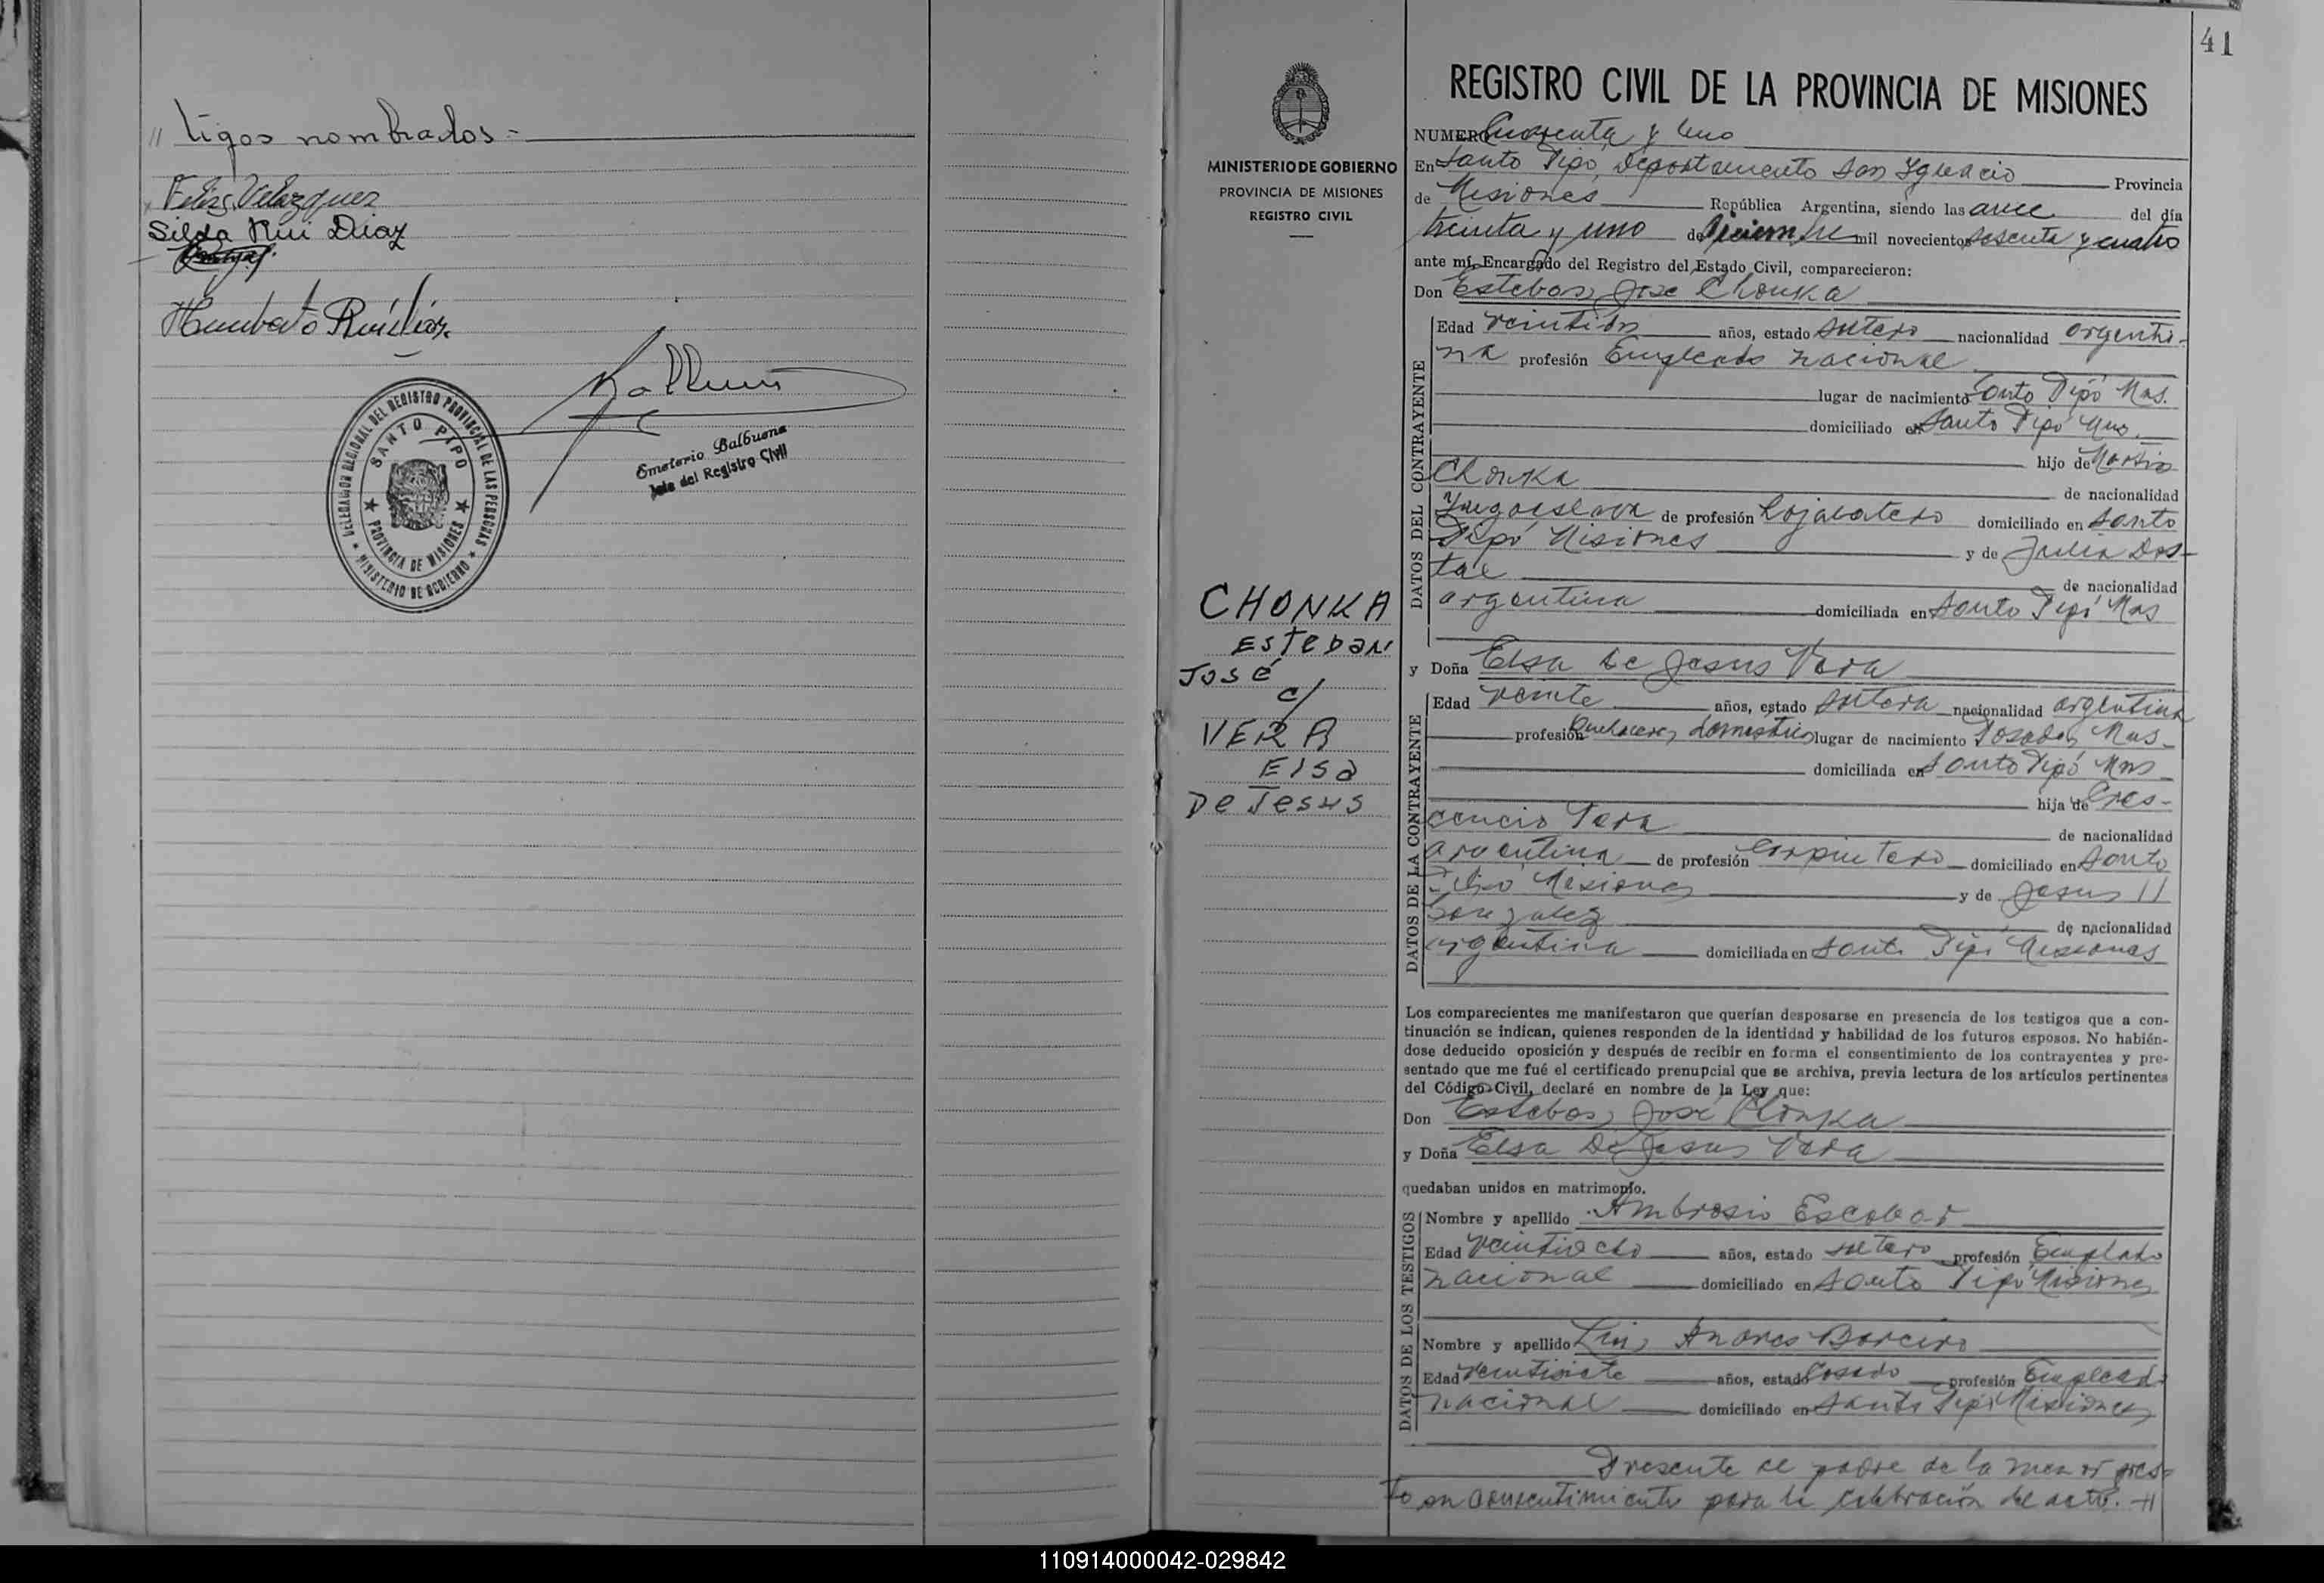 // tigos nombrados -
Felix Velazquez
Silda Rui Diaz
Humberto Ruisdiaz
DELEGACION REGIONAL DEL REGISTRO PROVINCIAL DE LAS PERSONAS
SANTO PIPO
PROVINCIA DE MISIONES
MINISTERIO DE GOBIERNO
Emeterio Balbuena
Jefe del Registro Civil
41
MINISTERIO DE GOBIERNO
PROVINCIA DE MISIONES
REGISTRO CIVIL
CHONKA
Esteban
José
c/
VERA
Elsa
De Jesus
REGISTRO CIVIL DE LA PROVINCIA DE MISIONES
NUMERO Cuarenta y Uno
En Santo Pipó, Departamento San Ignacio Provincia
de Misiones República Argentina, siendo las once del día
treinta y uno de Diciembre mil novecientos sesenta y cuatro
ante mí, Encargado del Registro del Estado Civil, comparecieron:
Don Esteban José Chonka
DATOS DEL CONTRAYENTE
Edad años, estado soltero nacionalidad argenti-
na profesión Empleado nacional
lugar de nacimiento Santo Pipó Mns.
domiciliado en Santo Pipó Mns.
hijo de Martin
Chonka de nacionalidad
Yugoeslava de profesión hojalatero domiciliado en Santo
Pipó Misiones y de Julia Dos-
tal de nacionalidad
argentina domiciliada en Santo Pipó Mns
y Doña Elsa de Jesus Vera
DATOS DE LA CONTRAYENTE
Edad veinte años, estado soltera nacionalidad argentina
profesión Quehaceres domesticos lugar de nacimiento Posadas Mns-
domiciliada en Santo Pipó Mns
hija de Cres-
cencio Vera de nacionalidad
argentina de profesión Carpintero domiciliado en Santo
Pipó Misiones y de Jesus //
Gonzalez de nacionalidad
argentina domiciliada en Santo Pipó Misiones
Los comparecientes me manifestaron que querían desposarse en presencia de los testigos que a con-
tinuación se indican, quienes responden de la identidad y habilidad de los futuros esposos. No habién-
dose deducido oposición y después de recibir en forma el consentimiento de los contrayentes y pre-
sentado que me fué el certificado prenupcial que se archiva, previa lectura de los artículos pertinentes
del Código Civil, declaré en nombre de la Ley que:
Don Esteban José Chonka
y Doña Elsa De Jesus Vera
quedaban unidos en matrimonio.
DATOS DE LOS TESTIGOS
Nombre y apellido Ambrosio Escobar
Edad veintiocho años, estado soltero profesión Empleado
nacional domiciliado en Santo Pipó Misiones
Nombre y apellido Luis Andres Barceiro
Edad veintisiete años, estado casado profesión Empleado
nacional domiciliado en Santo Pipó Misiones
Presente el padre de la menor pres-
to su consentimiento para la celebración del acto. //
110914000042-029842